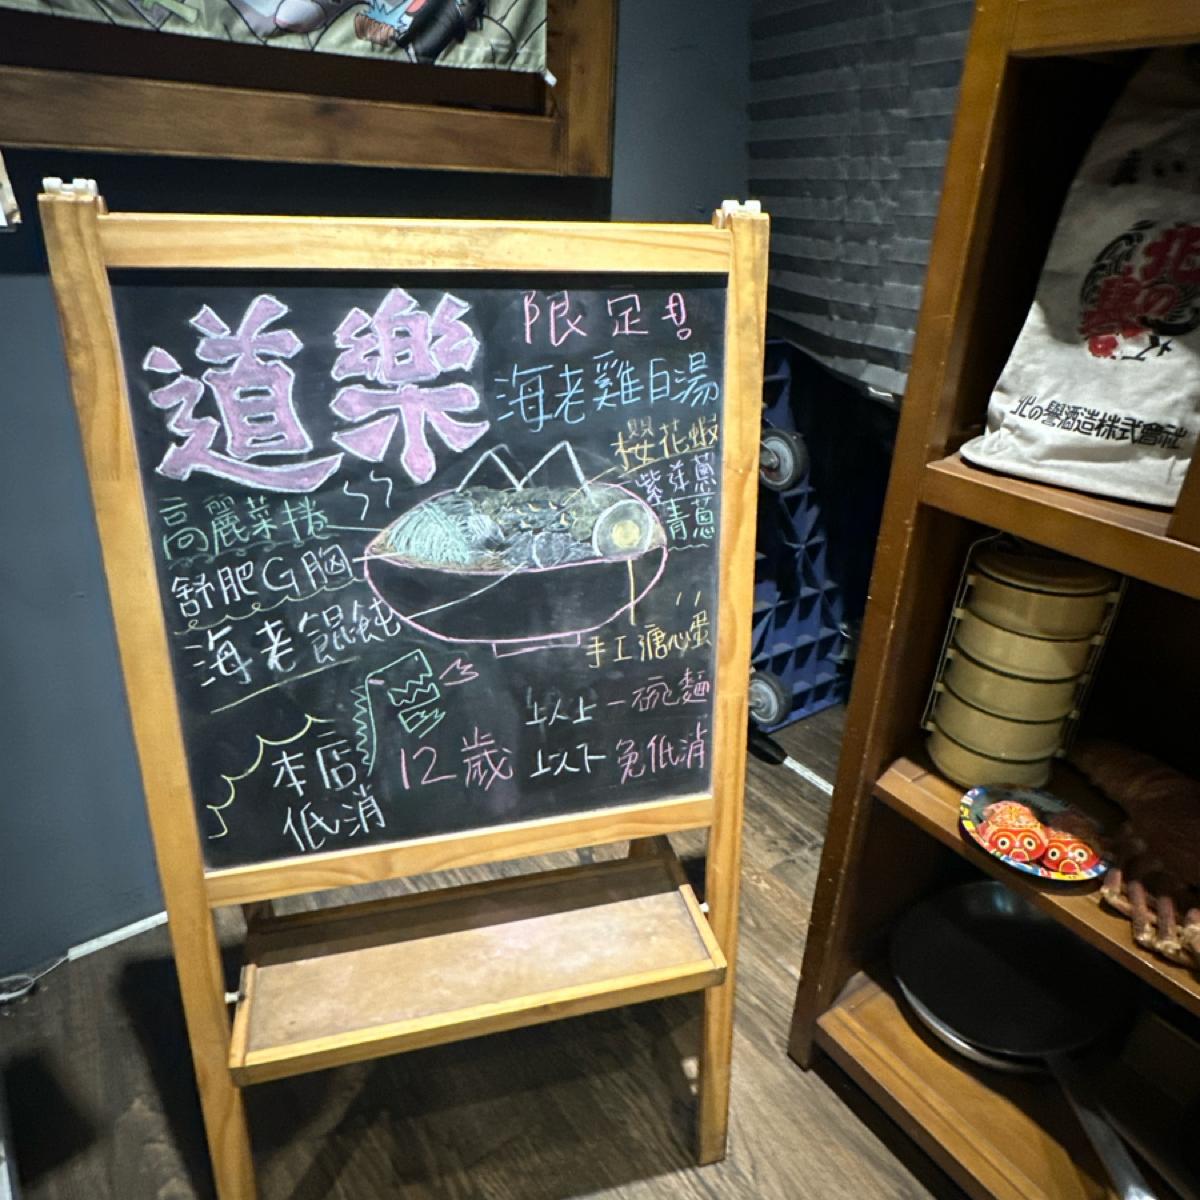 道樂
限定!
海老雞白湯
櫻花蝦
紫洋蔥
青蔥
高麗菜捲
舒肥G胸
海老餛飩
手工溏心蛋
本店
低消
12歲
以上一碗麵
以下免低消
北の譽
北の譽酒造株式會社